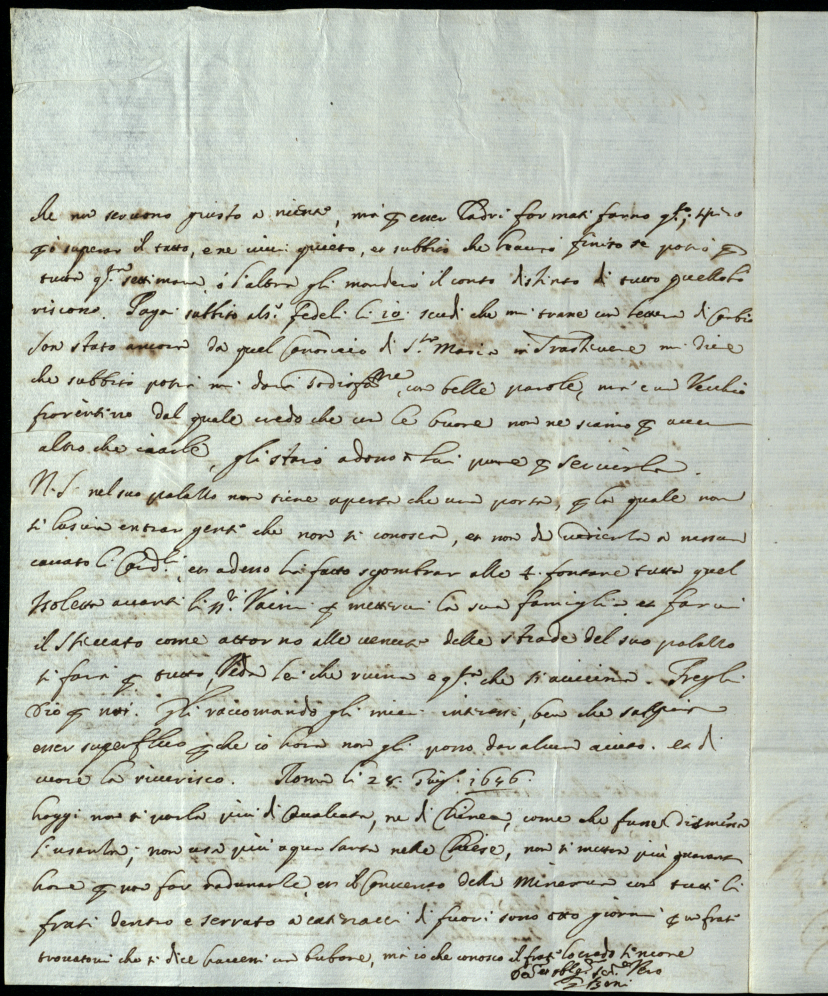 che non servono giusto a niente, ma p esser Padri formati fanno q.to, spero
superar il tutto, e ne vivi quieto, et subbito che haverò finito se potrò p
tutta q.ta settimana, ò l'altra gli manderò il conto distinto di tutto quello
Pagai subbito al S.r fedeli li 10 scudi che mi trasse un lettera di Cambio
Son stato ancora da quel Canonico di S.ta Maria in Trastevere mi dice
che subbito potrà mi darà sodisfa.ne, con belle parole, ma è un Vecchio
fiorentino dal quale credo che con le buone non ne siamo p aver
altro che ciarle, gli starò adosso lui pure p servirla.
N. S. nel suo palazzo non tiene aperta che una porta, p la quale non
si lascia entrar gente che non si conosca, et non dà udienza a nessun
cavato li Card.li, et adesso hà fatto sgombrar alle 4 fontane tutta quel
Isoletta avanti li p metterci la sua famiglia et farci
il steccato come attorno alle venute delle strade del suo palazzo
si farà p tutto, Veda lei che ruina e q.ta che si avicina. Preghi
Dio p noi. Gli raccomando gli miei interessi, ben che sappia
esser superfluo che io hora non gli posso dar alcun aiuto. et di
cuore la riverisco. Roma li 28 1656
hoggi non si parla più di Cavalcata, ne di Chinea, come che fusse dismessa
l'usanza, non usa più aqua santa nelle Chiese, non si metton più quarant
hore p non far radunanze, et il Convento della Minerva con tutti li
frati dentro e serrato a catenacci di fuori sono otto giorni p un frate
trovatovi che si dice havesse un bubone, ma io che conosco il frate lo credo